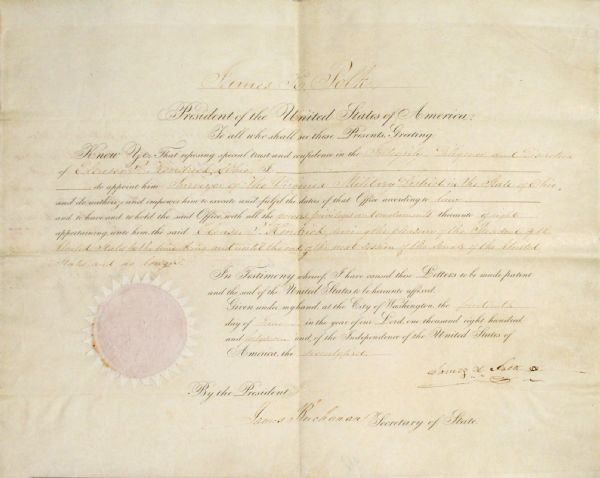 James K. Polk,
President of the United States of America:
To all who shall see these Presents, Greeting:
Know Ye, That reposing special trust and confidence in the Integrity, Diligence and Discretion
of Eleazer P. Kendrick, Ohio, I
do appoint him Surveyor of the Virginia Military District in the State of Ohio,
and do authorize and empower him to execute and fulfil the duties of that Office according to law
and to have and to hold the said Office with all the powers, privileges and emoluments thereunto of right
appertaining, unto him the said Eleazer P. Kendrick, during the pleasure of the President of the
United States for the time being, and until the end of the next session of the Senate of the United
States and no longer.
In Testimony whereof, I have caused these Letters to be made patent
and the seal of the United States to be hereunto affixed.
Given under my hand, at the City of Washington, the
day of in the year of our Lord, one thousand eight hundred
and and, of the Independence of the United States of
America, the
James K. Polk
By the President
James Buchanan Secretary of State